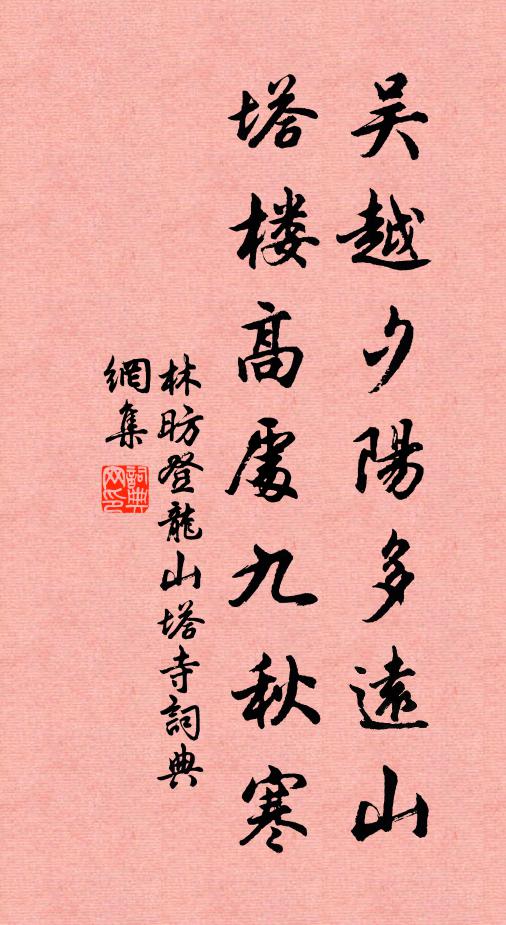 吴越夕陽多遠山
塔楼高處九秋寒
林昉登龍山塔寺詞典
網集
詞典
网印